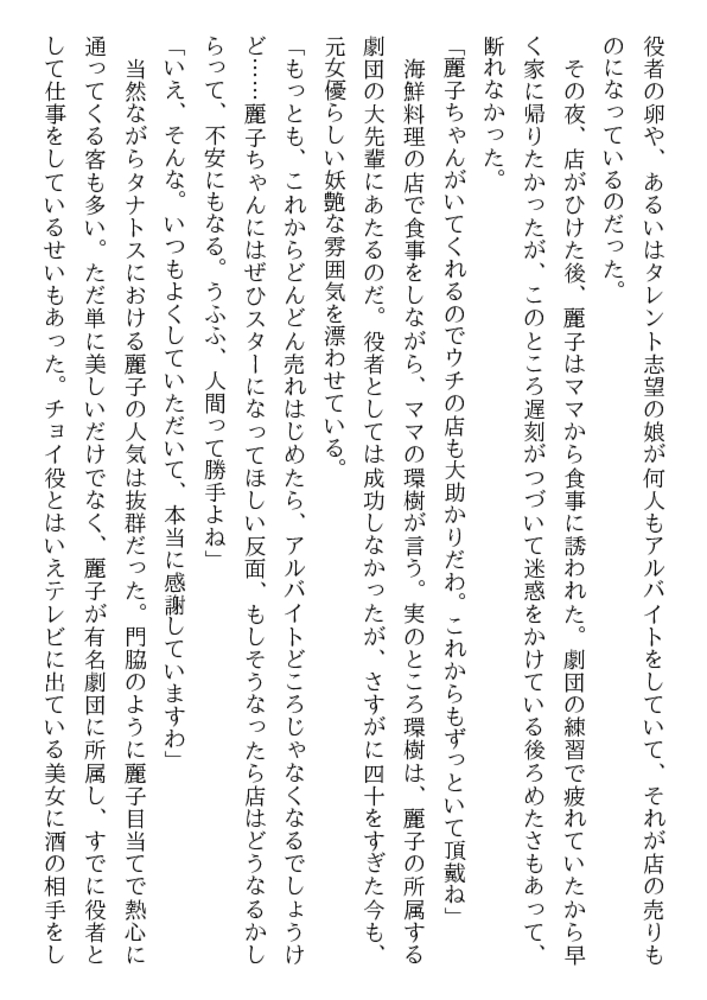 役者の卵や、あるいはタレント志望の娘が何人もアルバイトをしていて、それが店の売りも
のになっているのだった。
　その夜、店がひけた後、麗子はママから食事に誘われた。劇団の練習で疲れていたから早
く家に帰りたかったが、このところ遅刻がつづいて迷惑をかけている後ろめたさもあって、
断れなかった。
「麗子ちゃんがいてくれるのでウチの店も大助かりだわ。これからもずっといて頂戴ね」
　海鮮料理の店で食事をしながら、ママの環樹が言う。実のところ環樹は、麗子の所属する
劇団の大先輩にあたるのだ。役者としては成功しなかったが、さすがに四十をすぎた今も、
元女優らしい妖艶な雰囲気を漂わせている。
「もっとも、これからどんどん売れはじめたら、アルバイトどころじゃなくなるでしょうけ
ど……麗子ちゃんにはぜひスターになってほしい反面、もしそうなったら店はどうなるかし
らって、不安にもなる。うふふ、人間って勝手よね」
「いえ、そんな。いつもよくしていただいて、本当に感謝していますわ」
　当然ながらタナトスにおける麗子の人気は抜群だった。門脇のように麗子目当てで熱心に
通ってくる客も多い。ただ単に美しいだけでなく、麗子が有名劇団に所属し、すでに役者と
して仕事をしているせいもあった。チョイ役とはいえテレビに出ている美女に酒の相手をし